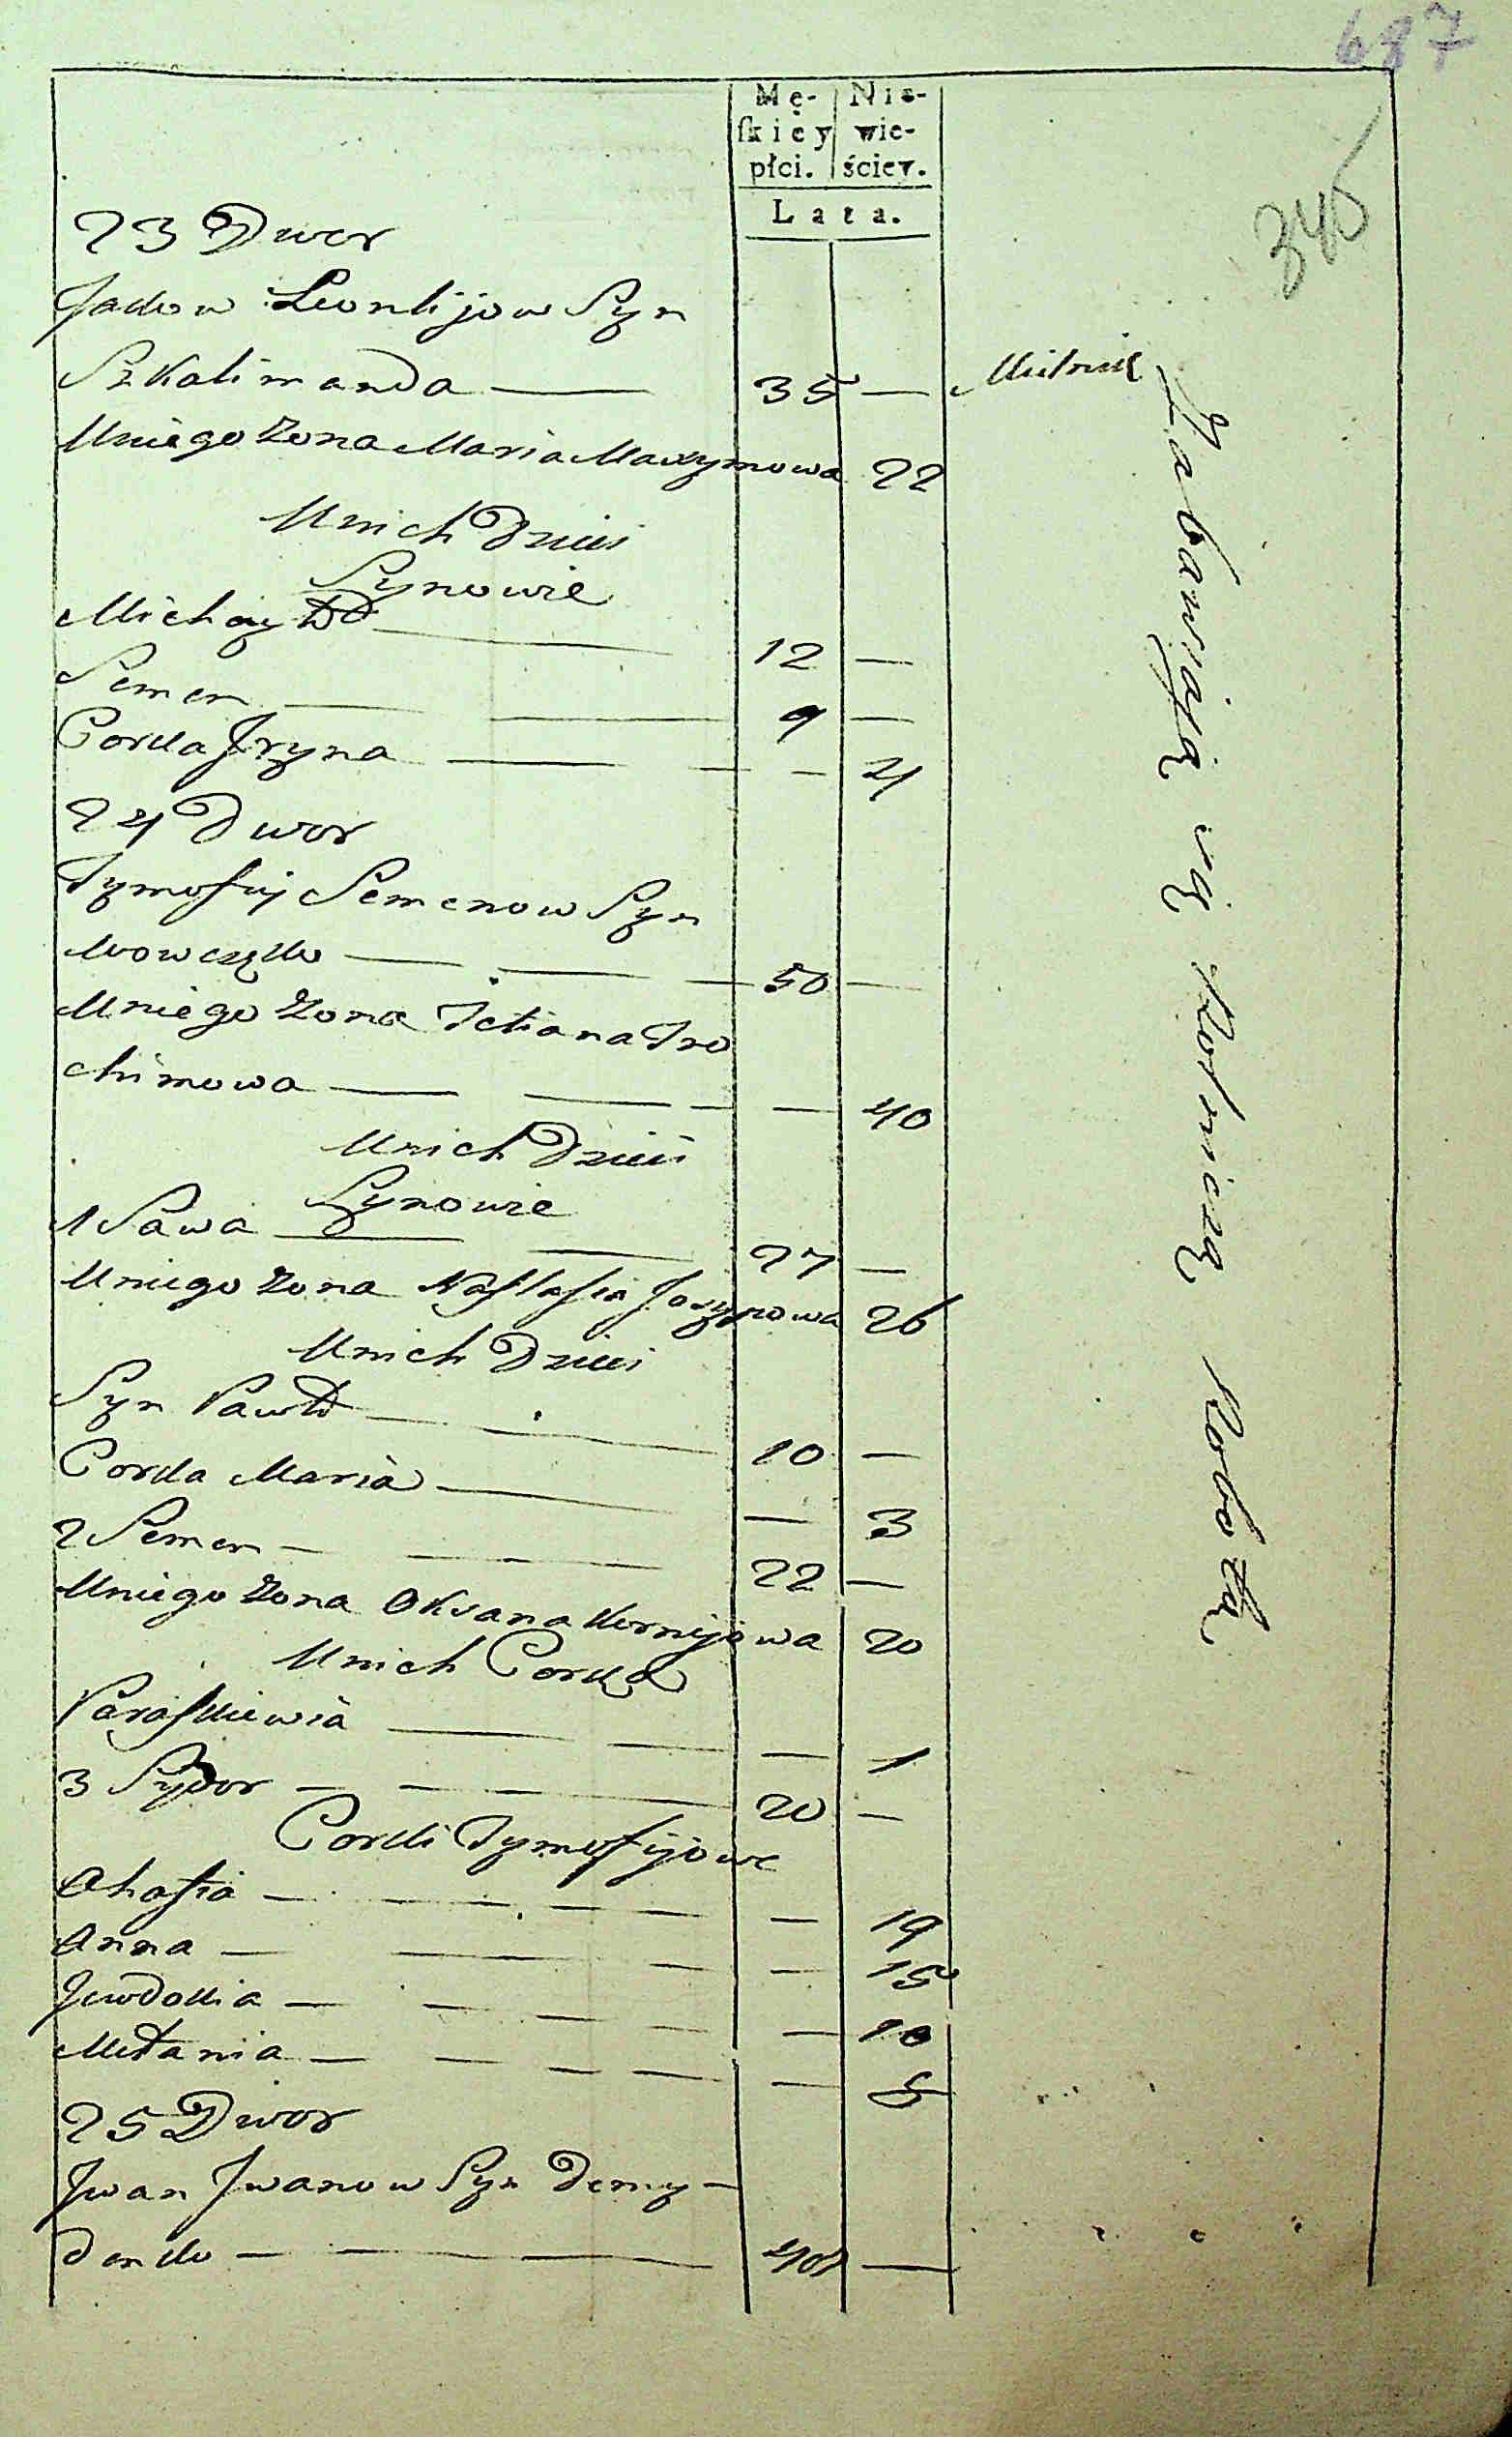 687
345
Mę- Nie-
ſkiey wie-
płci. ściey.
Lata.
23 Dwor
Jakow Leontijow Syn
Szkalimanda — 35 — Mielnik
Uniego Zona Maria Maxymowa 22
Unich Dzieci
Synowie
Michayło — 12 —
Semen — 9 —
Corka Jryna — — 4
24 Dwor
Tymofiej Semenow Syn
Wowczęko — 50 —
Uniego Zona Tetiana Tro
chimowa — — 40
Unich Dzieci
Synowie
1 Sawa — 27 —
Uniego Zona Nastasia Josypowa 26
Unich Dzieci
Syn Pawło — 10 —
Corka Maria — — 3
2 Semen — 22 —
Uniego Zona Oksana Kornijowa 20
Unich Corka
Paraskiewia — — 1
3 Sydor — 20 —
Corki Tymofijowe
Ahafia — — 19
Anna — — 15
Jewdokia — — 10
Mełania — — 5
25 Dwor
Jwan Jwanow Syn Demy-
denko — 40 —
Zabawiają się Rolniczą Robotą